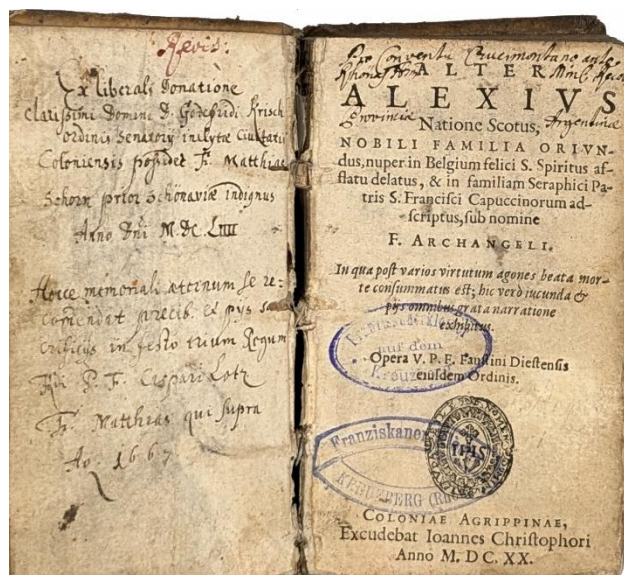 Revis:
Ex liberali Donatione
clarissimi Domini D. Godefridi Krisch
ordinis Senatorij inclytæ Ciuitatis
Coloniensis possidet F. Matthias
Schorn prior Schönaviæ indignus
Anno Dni M.DC.LIIII
Hocce memoriali æternum se re:
comendat precib. et pys sa
crificijs in festo trium Regum
P. F. Caspari Lotz
F. Matthias qui supra
Ao. 1667
Pro Conventu Crucimontano ante
Rhönam Min: Recol
Provinciæ Argentinæ
ALTER
ALEXIVS
Natione Scotus,
NOBILI FAMILIA ORIVN-
dus, nuper in Belgium felici S. Spiritus af-
flatu delatus, & in familiam Seraphici Pa-
tris S. Francisci Capuccinorum ad-
scriptus, sub nomine
F. ARCHANGELI.
In qua post varios virtutum agones beata mor-
te consummatus est; hic verò iucunda &
pijs omnibus grata narratione
exhibitus.
Opera V. P. F. Faustini Diestensis
eiusdem Ordinis.
auf dem
Kreuz
Franziskaner
KREUZBERG (Rhön
IHS
COLONIAE AGRIPPINAE,
Excudebat Ioannes Christophori
Anno M. DC. XX.